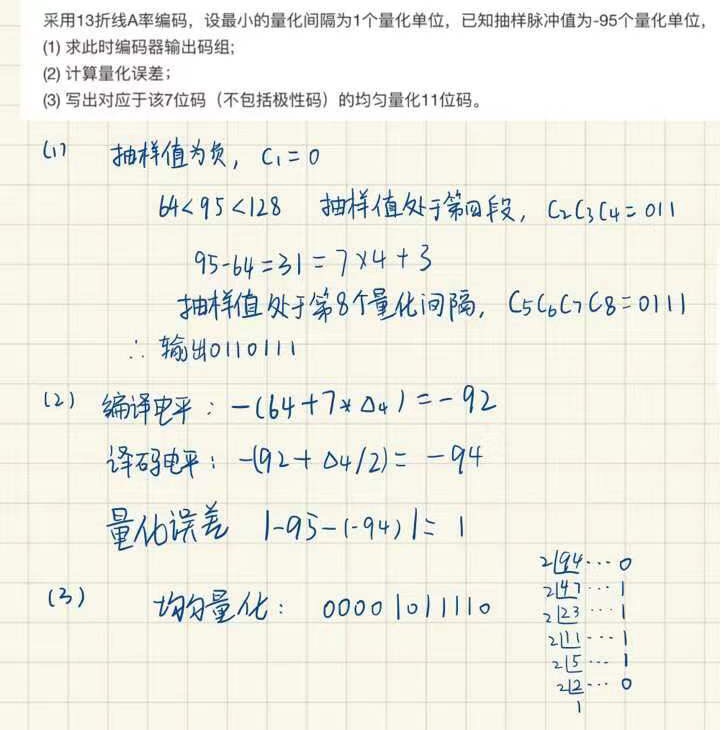 采用13折线A率编码，设最小的量化间隔为1个量化单位，已知抽样脉冲值为-95个量化单位，
(1) 求此时编码器输出码组;
(2) 计算量化误差；
(3) 写出对应于该7位码（不包括极性码）的均匀量化11位码。
(1) 抽样值为负，C₁=0
64<95<128 抽样值处于第四段，C₂C₃C₄=011
95-64=31=7×4+3
抽样值处于第8个量化间隔，C₅C₆C₇C₈=0111
∴ 输出0110111
(2) 编译电平：-(64+7*Δ₄)=-92
译码电平：-(92+Δ₄/2)=-94
量化误差 |-95-(-94)|=1
(3) 均匀量化：00001011110
2|94…0
2|47…1
2|23…1
2|11…1
2|5…1
2|2…0
1